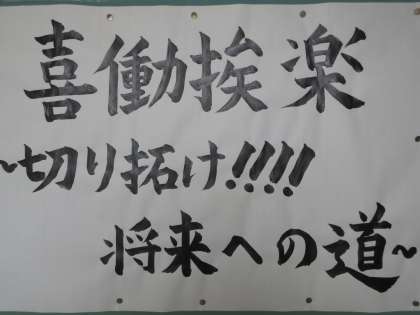 喜働挨楽
~切り拓け!!!!
将来への道~